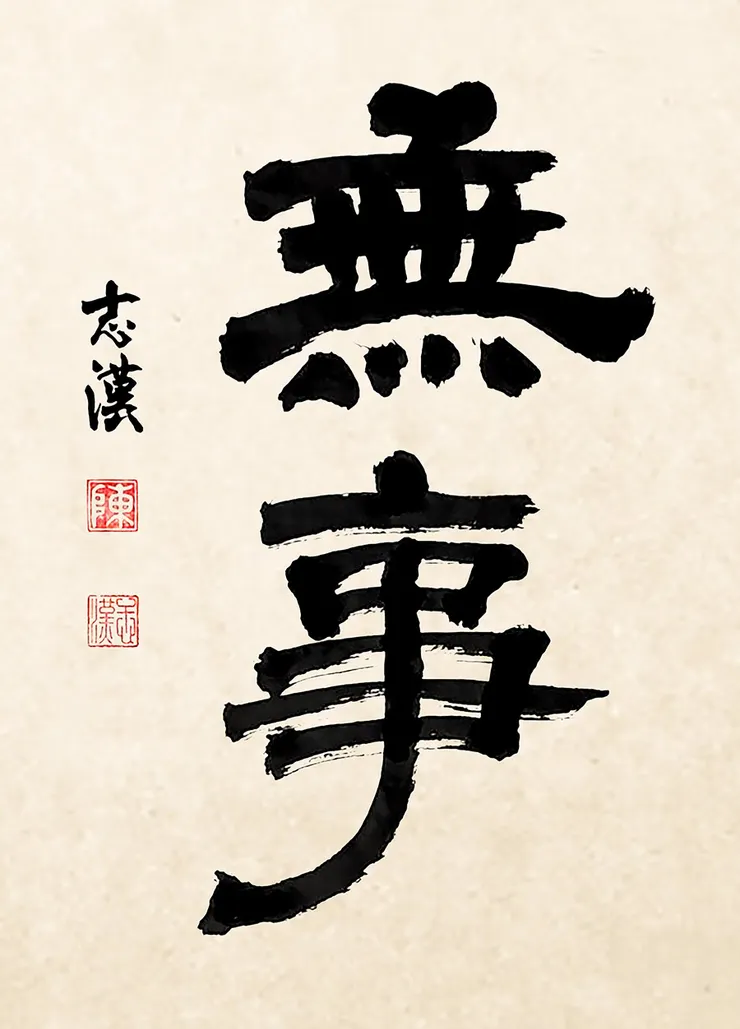 無事
志漢
陳
志漢